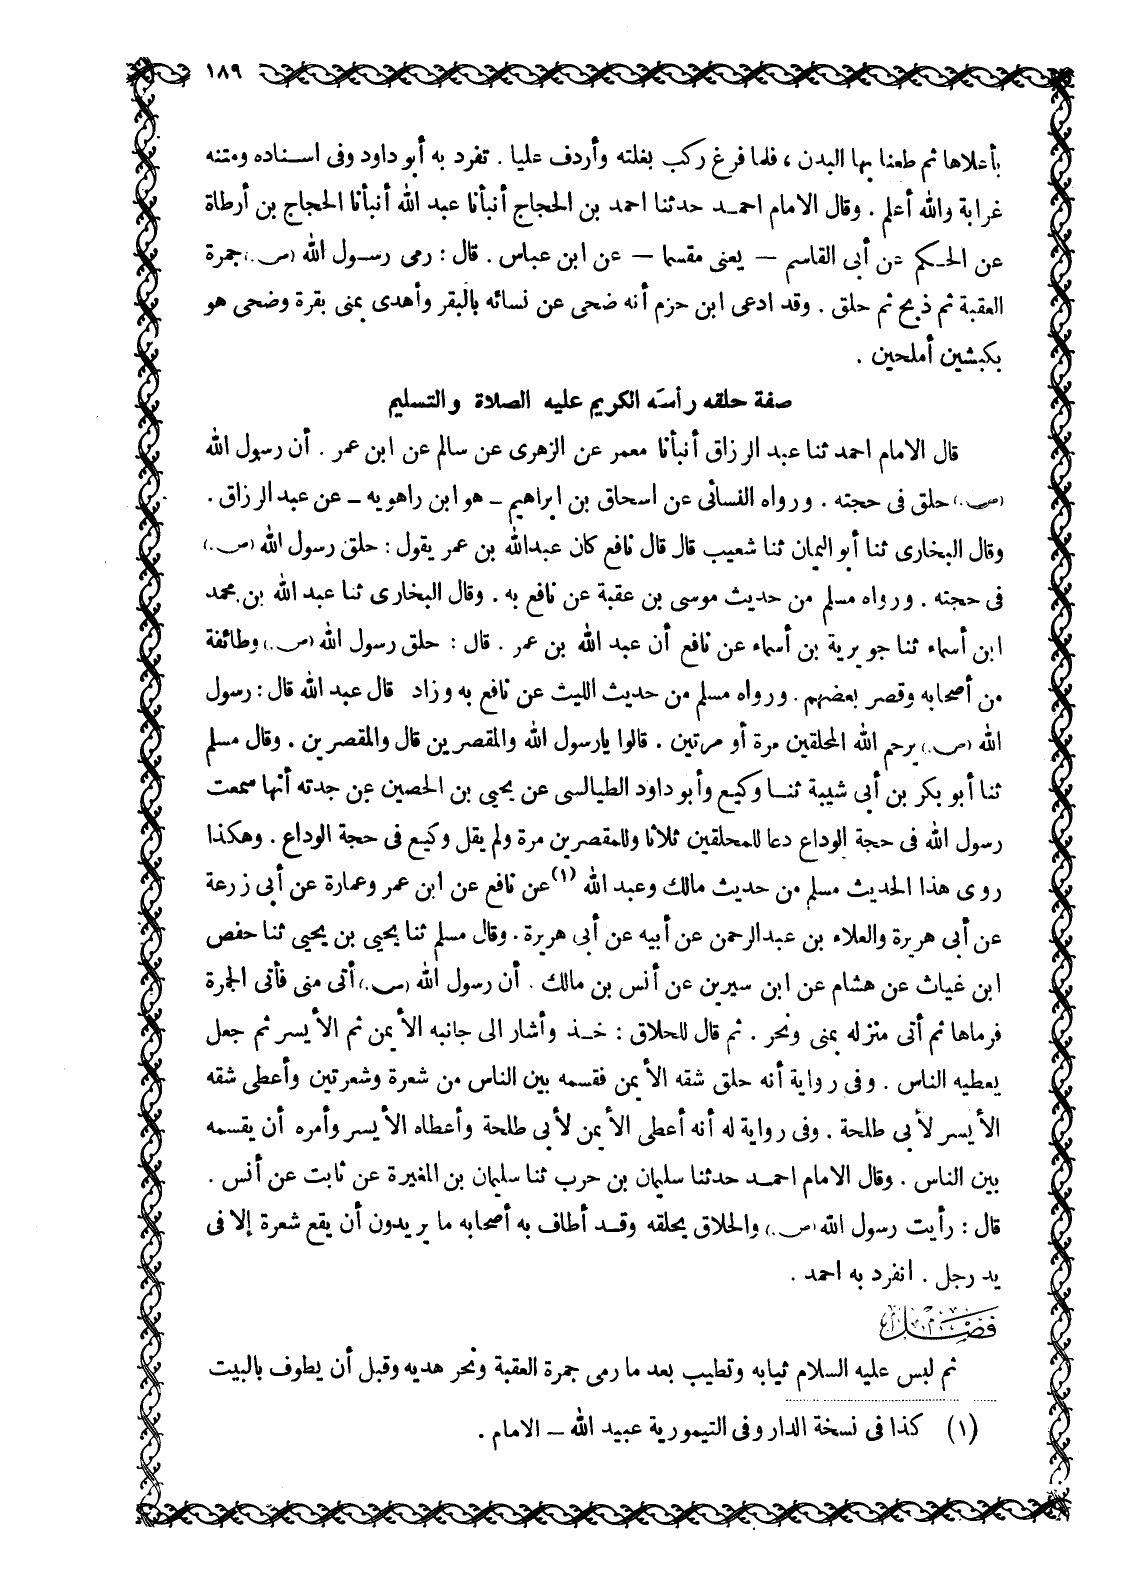 ١٨٩
بأعلاها ثم طعنا بها البدن ، فلما فرغ ركب بغلته وأردف عليا . تفرد به أبو داود وفى اسناده ومتنه
غرابة والله أعلم . وقال الامام احمد حدثنا احمد بن الحجاج أنبأنا عبد الله أنبأنا الحجاج بن أرطاة
عن الحكم عن أبى القاسم — يعنى مقسما — عن ابن عباس . قال : رمى رسول الله (ص.) جمرة
العقبة ثم ذبح ثم حلق . وقد ادعى ابن حزم أنه ضحى عن نسائه بالبقر وأهدى بمنى بقرة وضحى هو
بكبشين أملحين .
صفة حلقه رأسه الكريم عليه الصلاة والتسليم
قال الامام احمد ثنا عبد الرزاق أنبأنا معمر عن الزهرى عن سالم عن ابن عمر . أن رسول الله
(ص.) حلق فى حجته . ورواه النسائى عن اسحاق بن ابراهيم - هو ابن راهويه - عن عبد الرزاق .
وقال البخارى ثنا أبو اليمان ثنا شعيب قال قال نافع كان عبدالله بن عمر يقول : حلق رسول الله (ص.)
فى حجته . ورواه مسلم من حديث موسى بن عقبة عن نافع به . وقال البخارى ثنا عبد الله بن محمد
ابن أسماء ثنا جويرية بن أسماء عن نافع أن عبد الله بن عمر . قال : حلق رسول الله (ص.) وطائفة
من أصحابه وقصر بعضهم . ورواه مسلم من حديث الليث عن نافع به وزاد قال عبد الله قال : رسول
الله (ص.) يرحم الله المحلقين مرة أو مرتين . قالوا يارسول الله والمقصرين قال والمقصرين . وقال مسلم
ثنا أبو بكر بن أبى شيبة ثنا وكيع وأبو داود الطيالسى عن يحيى بن الحصين عن جدته أنها سمعت
رسول الله فى حجة الوداع دعا للمحلقين ثلاثا وللمقصرين مرة ولم يقل وكيع فى حجة الوداع . وهكذا
روى هذا الحديث مسلم من حديث مالك وعبد الله (١) عن نافع عن ابن عمر وعمارة عن أبى زرعة
عن أبى هريرة والعلاء بن عبدالرحمن عن أبيه عن أبى هريرة . وقال مسلم ثنا يحيى بن يحيى ثنا حفص
ابن غياث عن هشام عن ابن سيرين عن أنس بن مالك . أن رسول الله (ص.) أتى منى فأتى الجمرة
فرماها ثم أتى منزله بمنى ونحر . ثم قال للحلاق : خذ وأشار الى جانبه الأيمن ثم الأيسر ثم جعل
يعطيه الناس . وفى رواية أنه حلق شقه الأيمن فقسمه بين الناس من شعرة وشعرتين وأعطى شقه
الأيسر لأبى طلحة . وفى رواية له أنه أعطى الأيمن لأبى طلحة وأعطاه الأيسر وأمره أن يقسمه
بين الناس . وقال الامام احمد حدثنا سليمان بن حرب ثنا سليمان بن المغيرة عن ثابت عن أنس .
قال : رأيت رسول الله (ص.) والحلاق يحلقه وقد أطاف به أصحابه ما يريدون أن يقع شعرة إلا فى
يد رجل . انفرد به احمد .
فصل
ثم لبس عليه السلام ثيابه وتطيب بعد ما رمى جمرة العقبة ونحر هديه وقبل أن يطوف بالبيت
(١) كذا فى نسخة الدار وفى التيمورية عبيد الله – الامام .